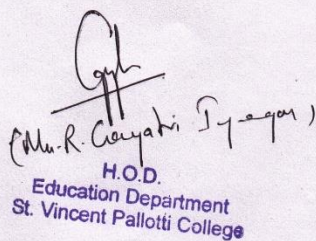 (Mrs. R. Gayatri Iyengar)
H.O.D.
Education Department
St. Vincent Pallotti College